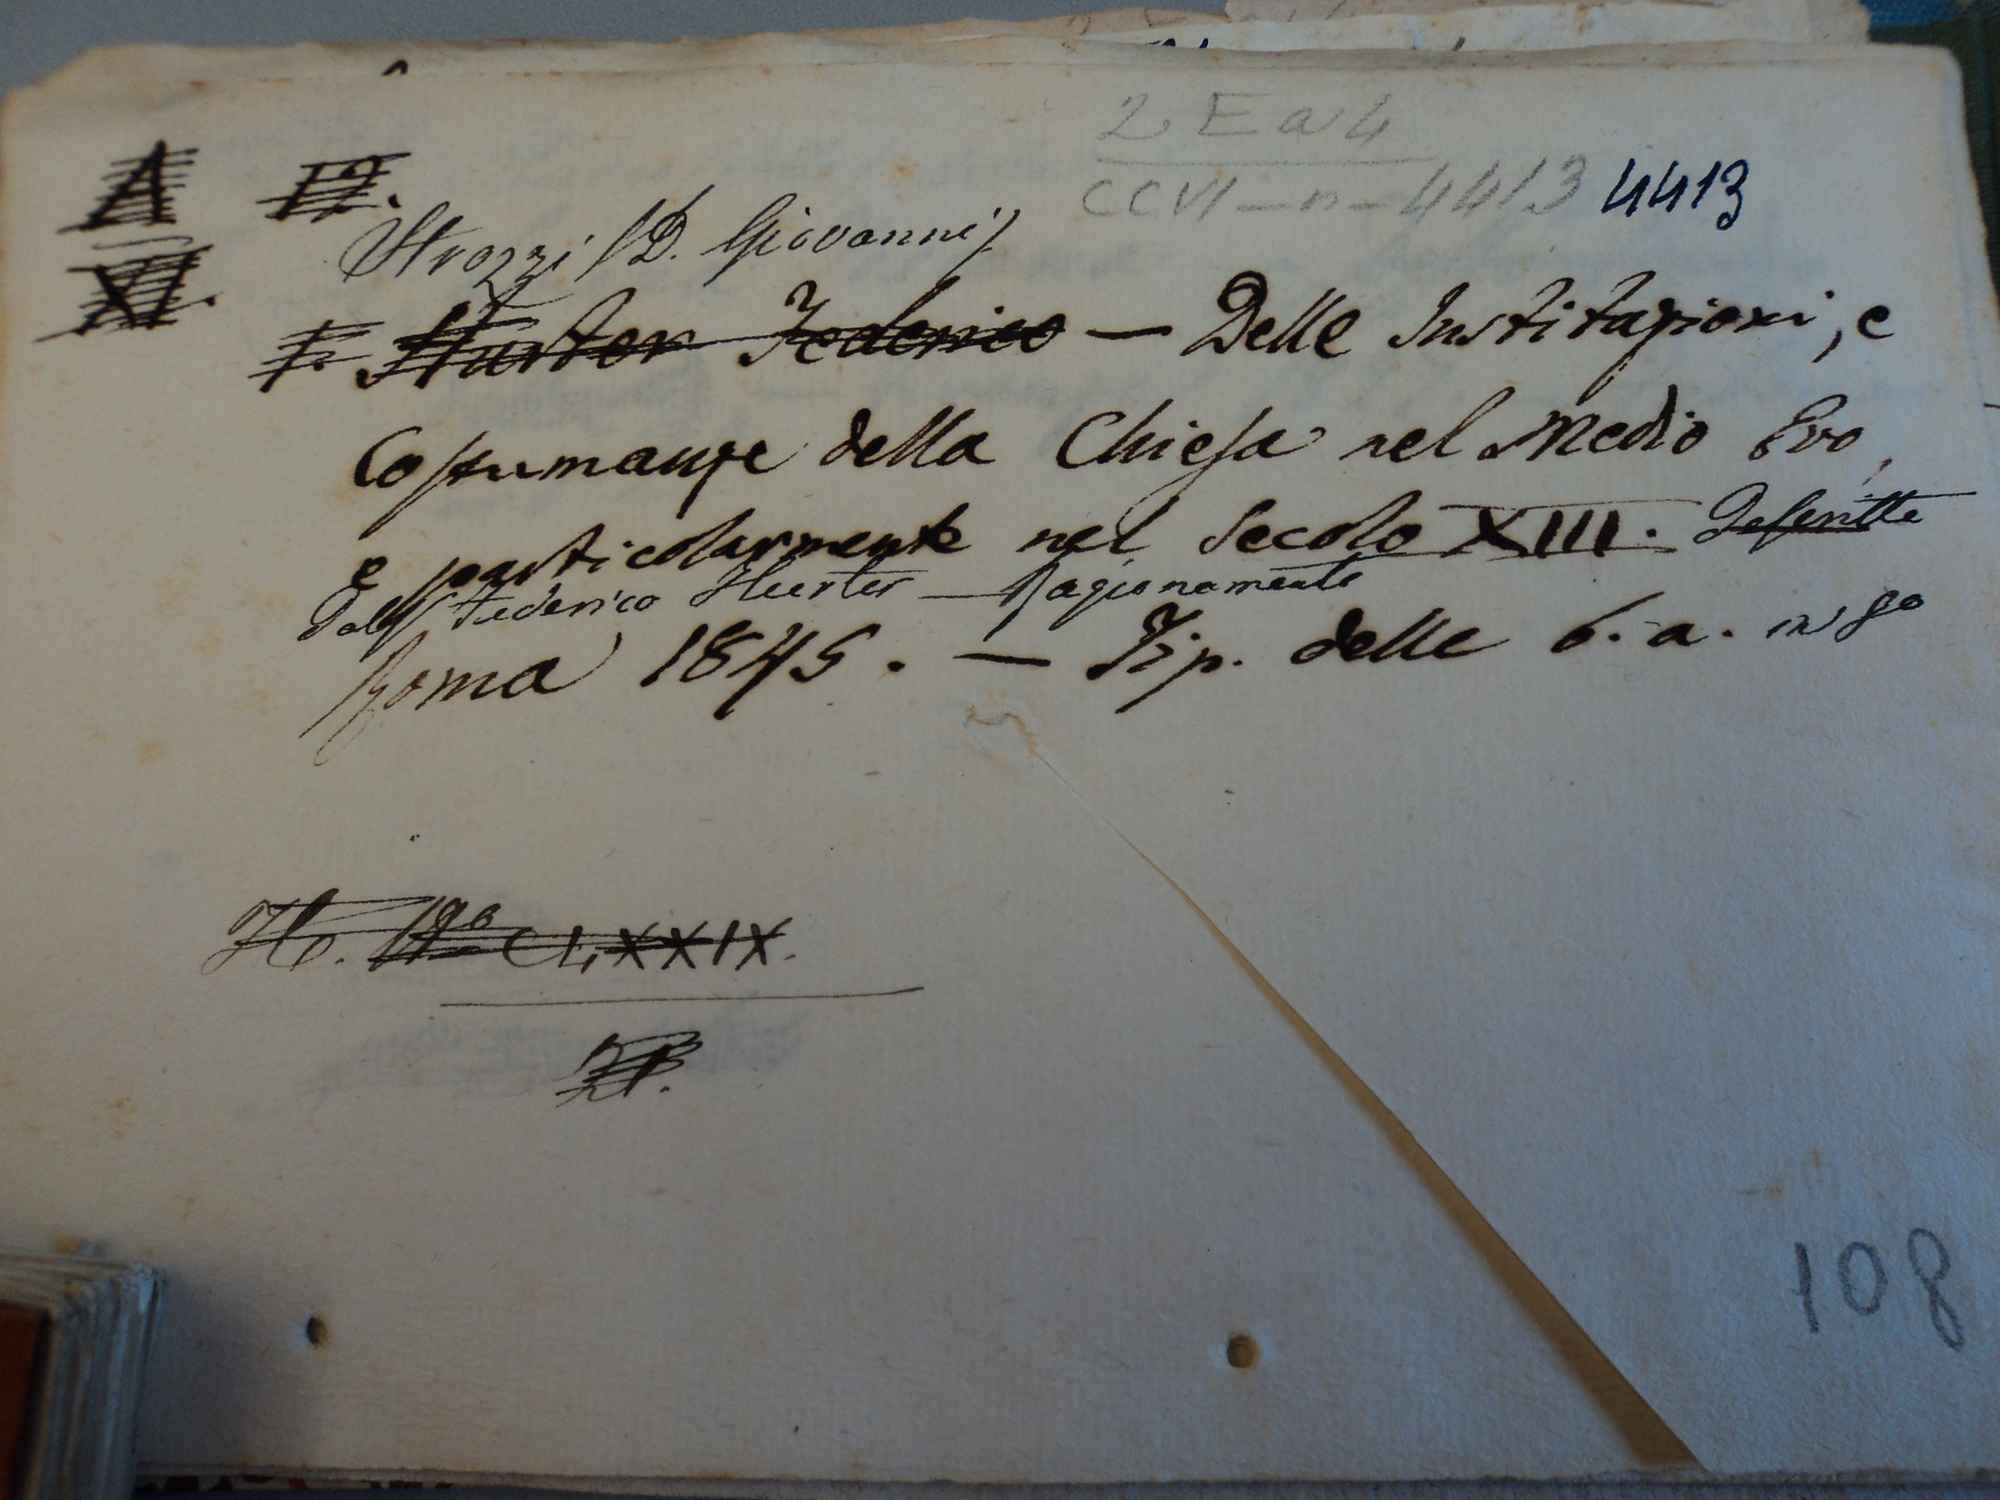 2 E a 4
A 12.
CCVI - n - 4413 4413
XI.
Strozzi (D. Giovanni)
Hurter Federico — Delle Instituzioni, e
Costumanze della Chiesa nel Medio Evo,
e particolarmente nel Secolo XIII. Descritte
Federico Hurter — Ragionamento
Roma 1845. — Tip. delle b. a. in 8o
CLXXIX.
108